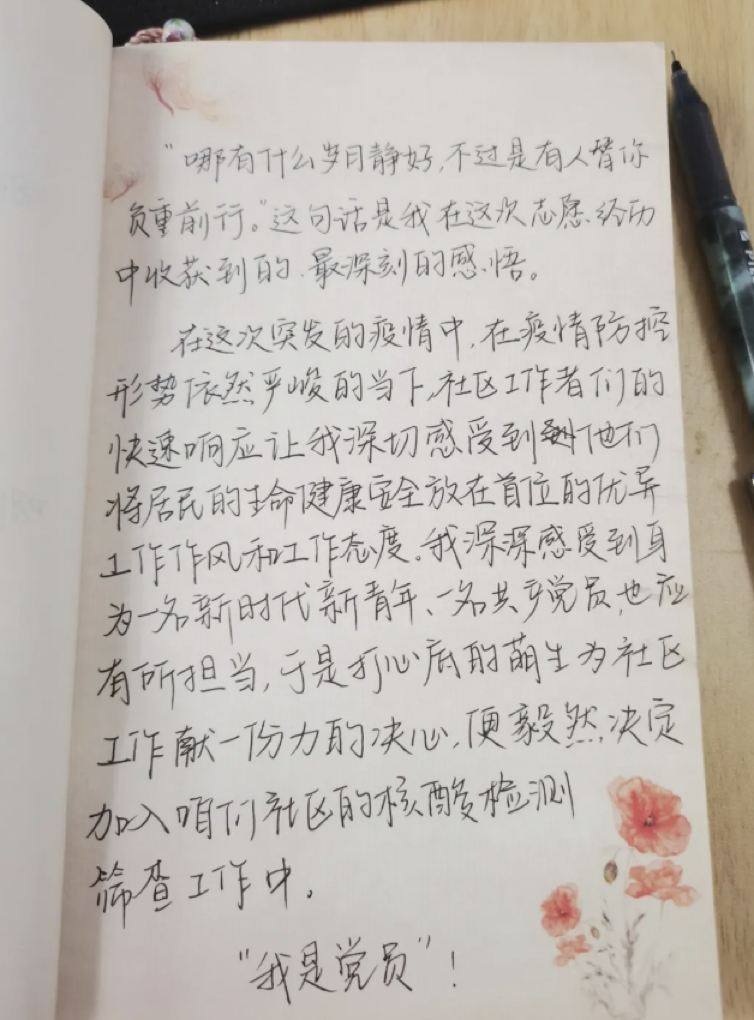 “哪有什么岁月静好，不过是有人替你
负重前行。”这句话是我在这次志愿经历
中收获到的、最深刻的感悟。
在这次突发的疫情中，在疫情防控
形势依然严峻的当下，社区工作者们的
快速响应让我深切感受到他们
将居民的生命健康安全放在首位的优异
工作作风和工作态度。我深深感受到身
为一名新时代新青年、一名共产党员，也应
有所担当，于是打心底的萌生为社区
工作献一份力的决心，便毅然决定
加入咱们社区的核酸检测
筛查工作中。
“我是党员”！